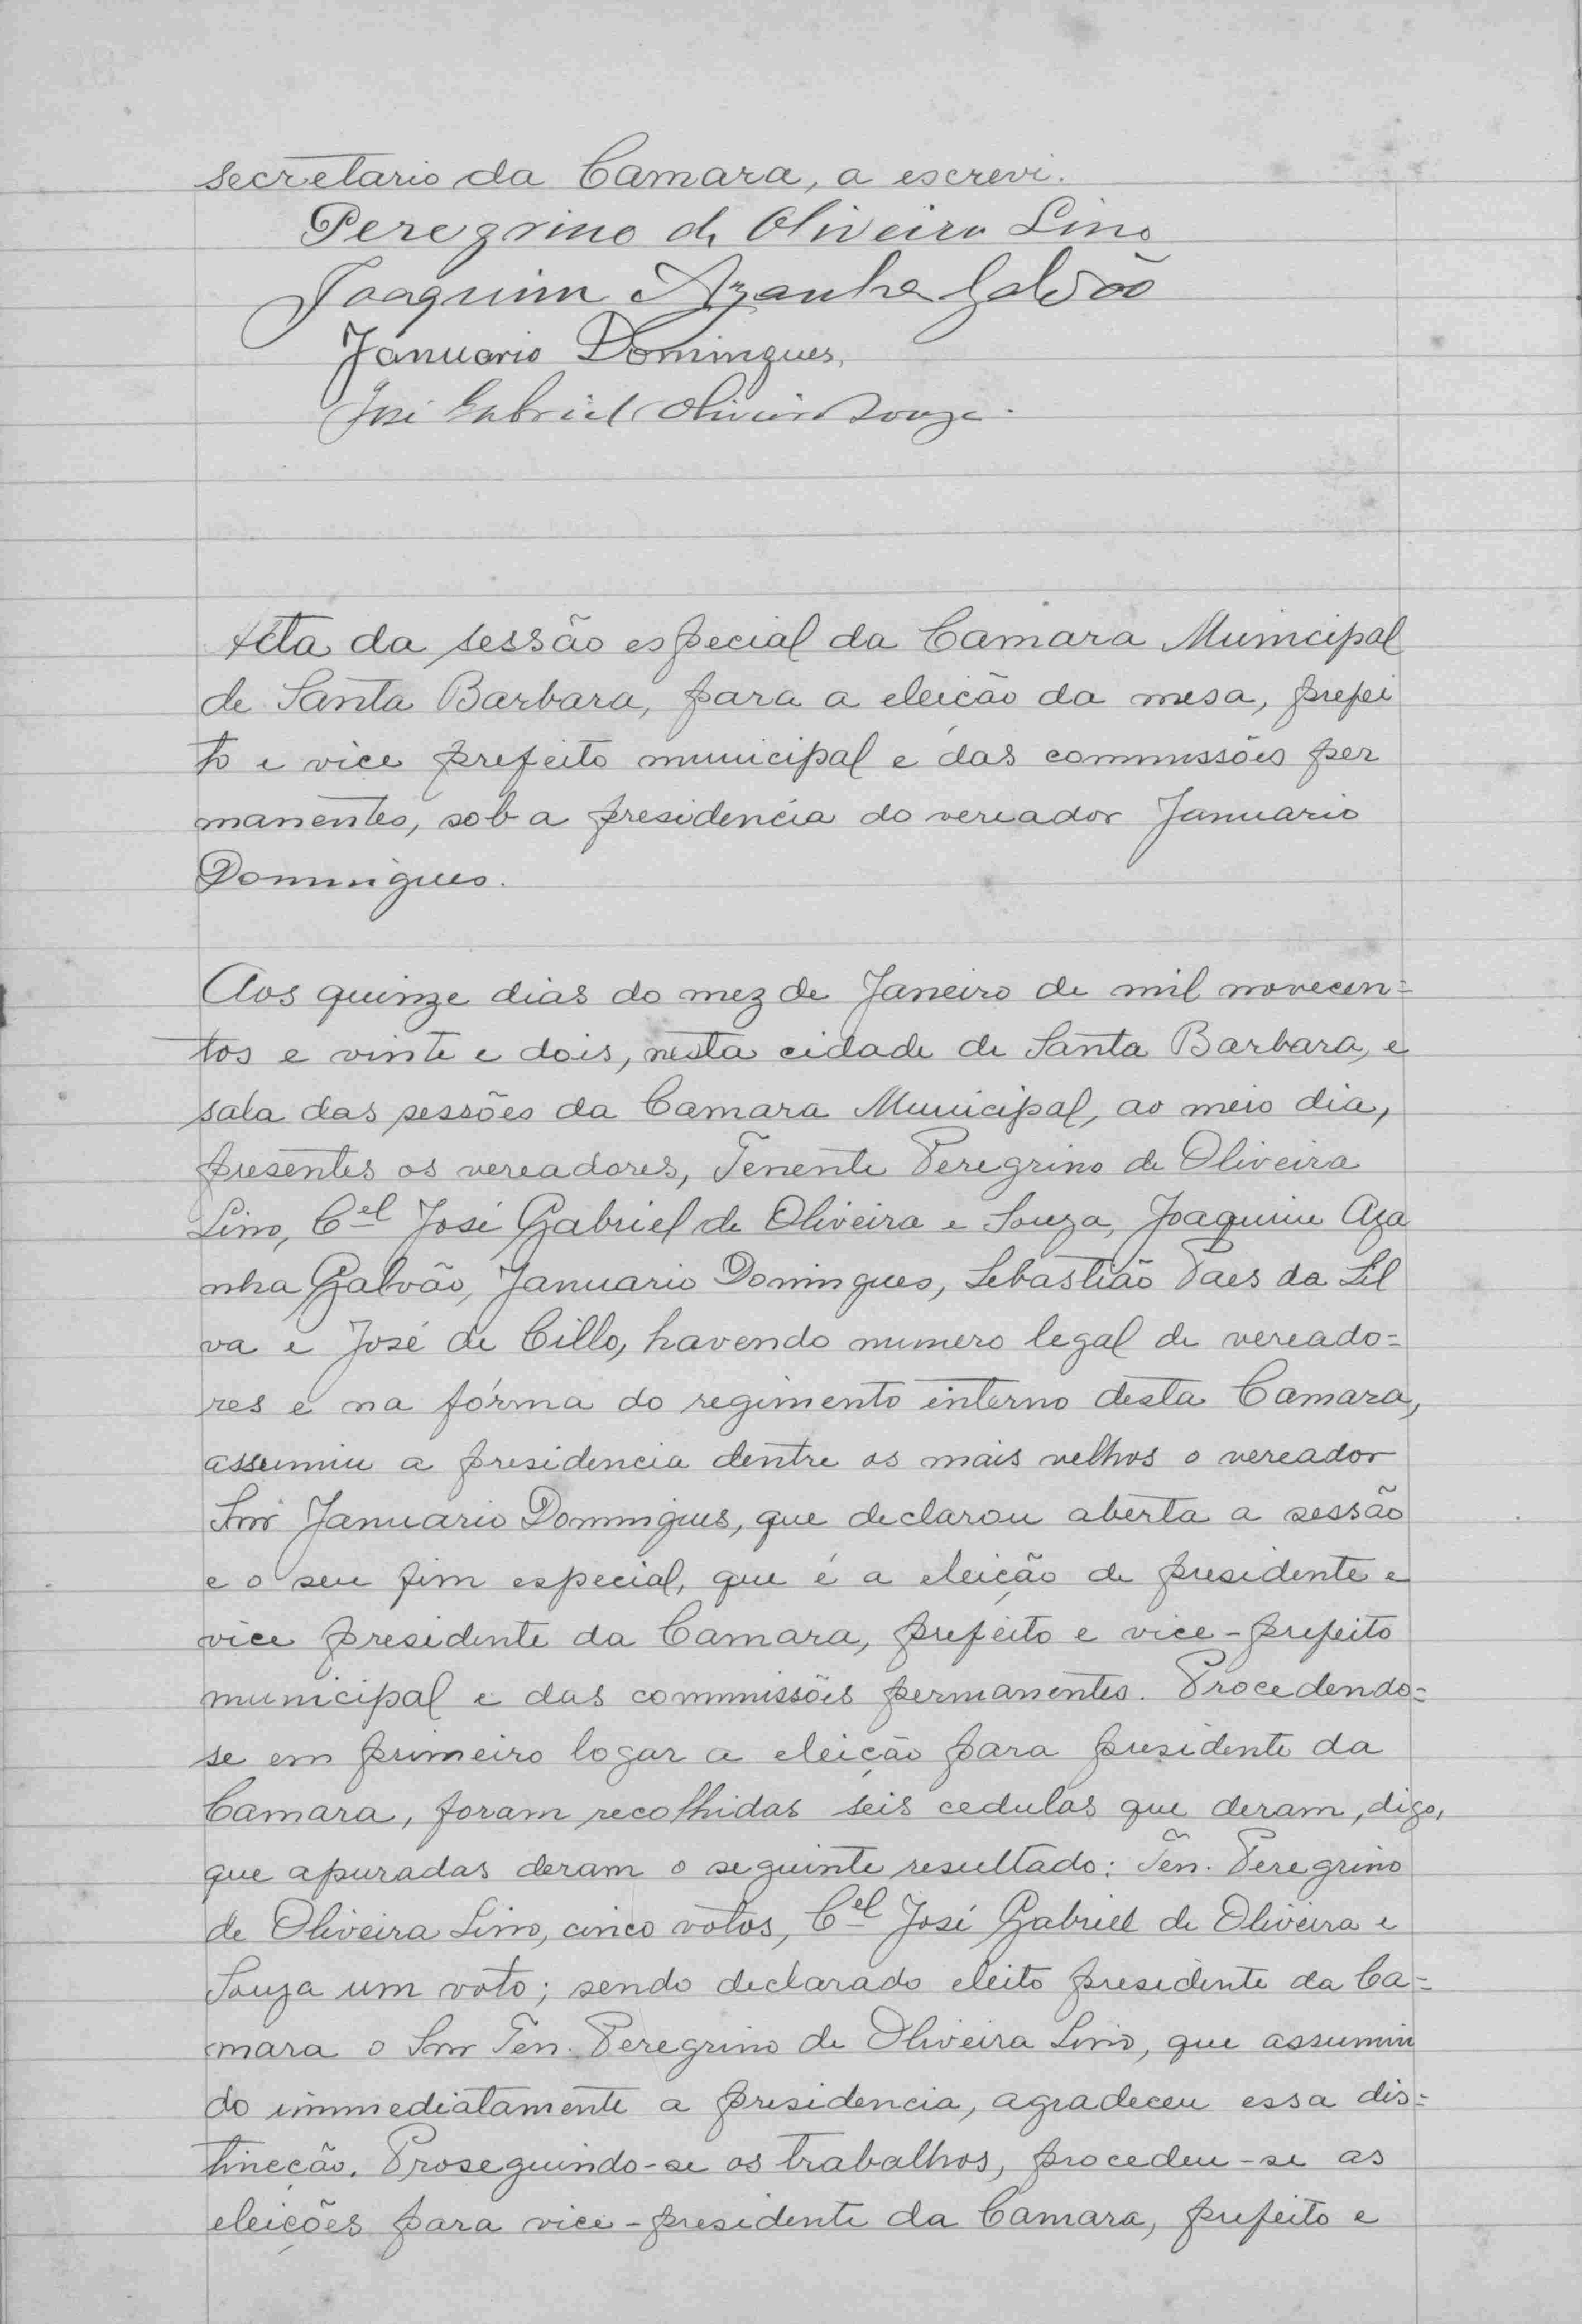 secretario da Camara, a escrevi.
Peregrino de Oliveira Lino
Joaquim Azanha Galvão
Januario Domingues.
José Gabriel Oliveira Souza.
Acta da sessão especial da Camara Municipal
de Santa Barbara, para a eleição da mesa, prefei
to e vice prefeito municipal e das commissões per
manentes, sob a presidencia do vereador Januario
Domingues.
Aos quinze dias do mez de Janeiro de mil novecen=
tos e vinte e dois, nesta cidade de Santa Barbara, e
sala das sessões da Camara Municipal, ao meio dia,
presentes os vereadores, Tenente Peregrino de Oliveira
Lino, Cel José Gabriel de Oliveira e Souza, Joaquim Aza
nha Galvão, Januario Domingues, Sebastião Paes da Sil
va e José de Cillo, havendo numero legal de vereado=
res e na fórma do regimento interno desta Camara,
assumiu a presidencia dentre os mais velhos o vereador
Snr Januario Domingues, que declarou aberta a sessão
e o seu fim especial, que é a eleição de presidente e
vice presidente da Camara, prefeito e vice-prefeito
municipal e das commissões permanentes. Procedendo=
se em primeiro logar a eleição para presidente da
Camara, foram recolhidas seis cedulas que deram, digo,
que apuradas deram o seguinte resultado: Ten. Peregrino
de Oliveira Lino, cinco votos, Cel José Gabriel de Oliveira e
Souza um voto; sendo declarado eleito presidente da Ca=
mara o Snr Ten. Peregrino de Oliveira Lino, que assumin
do immediatamente a presidencia, agradeceu essa dis=
tincção. Proseguindo-se os trabalhos, procedeu-se as
eleições para vice-presidente da Camara, prefeito e